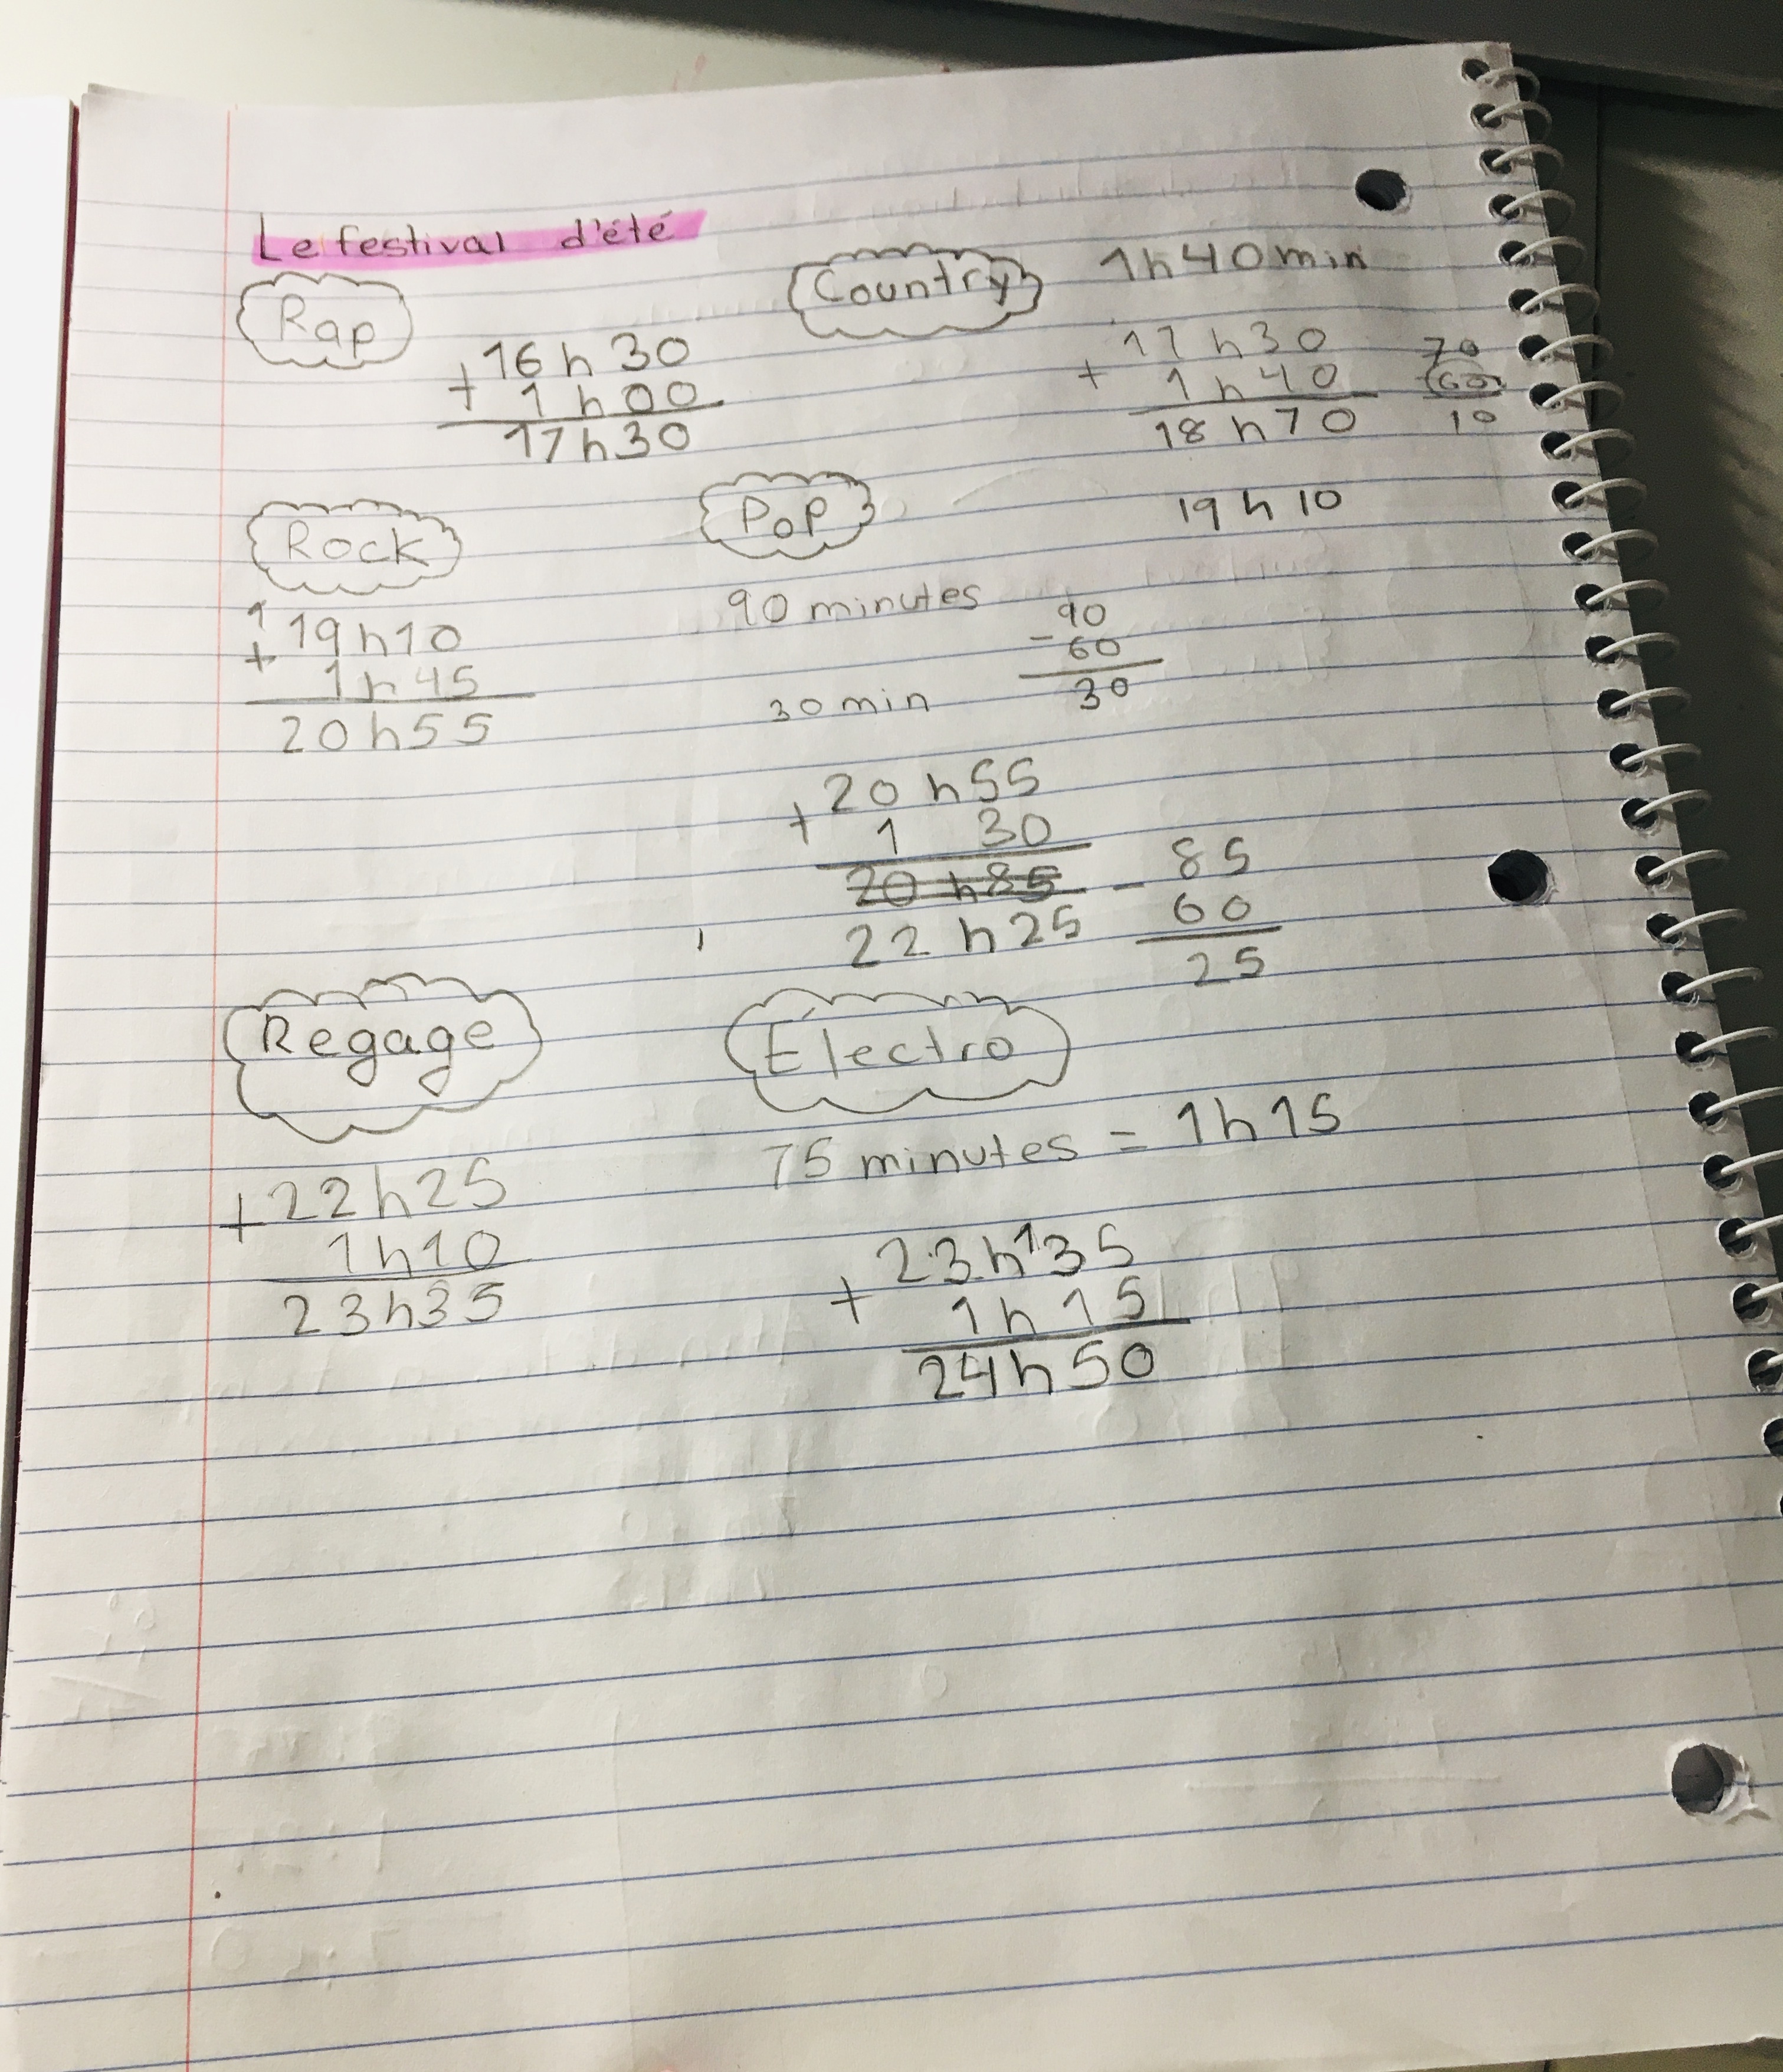 Le festival d'été
Rap
16h30
+ 1h00
17h30
Country
1h40min
17h30
+ 1h40
18h70
70
60
10
19h10
Rock
1
19h10
+ 1h45
20h55
Pop
90 minutes
90
- 60
30
30min
20h55
+ 1 30
20h85
22h25
85
- 60
25
Regage
+22h25
1h10
23h35
Électro
75 minutes = 1h15
23h135
+ 1h15
24h50